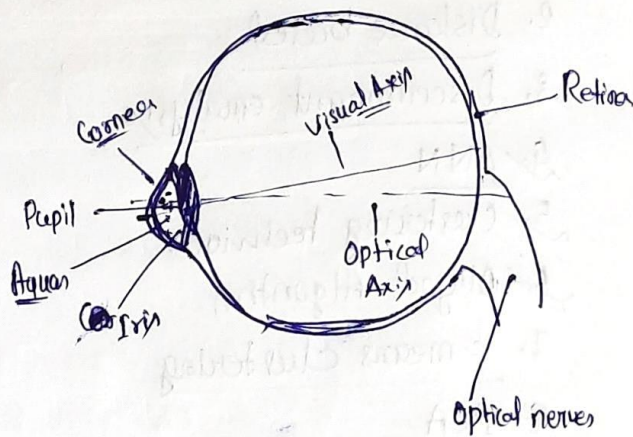 Cornea
Visual Axis
Retina
Pupil
Optical
Axis
Aquas
Iris
Optical nerves